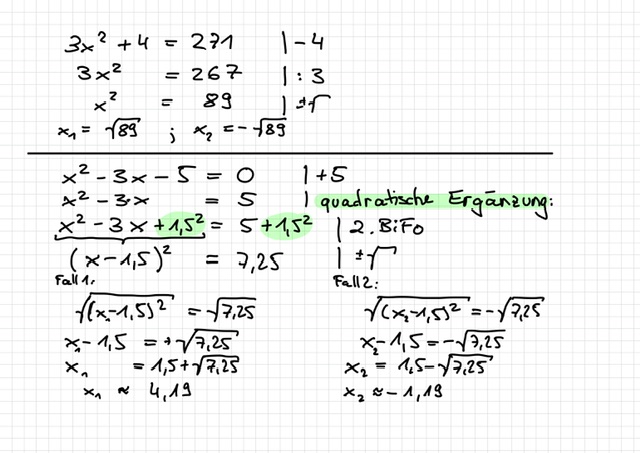 3x² + 4 = 271 | - 4
3x² = 267 | : 3
x² = 89 | ±√
x₁ = √89 ; x₂ = -√89
x² - 3x - 5 = 0 | +5
x² - 3x = 5 | quadratische Ergänzung:
x² - 3x + 1,5² = 5 + 1,5² | 2. BiFo
(x - 1,5)² = 7,25 | ±√
Fall 1: Fall 2:
√(x₁-1,5)² = √7,25 √(x₂-1,5)² = -√7,25
x₁ - 1,5 = +√7,25 x₂ - 1,5 = -√7,25
x₁ = 1,5 + √7,25 x₂ = 1,5 - √7,25
x₁ ≈ 4,19 x₂ ≈ -1,19